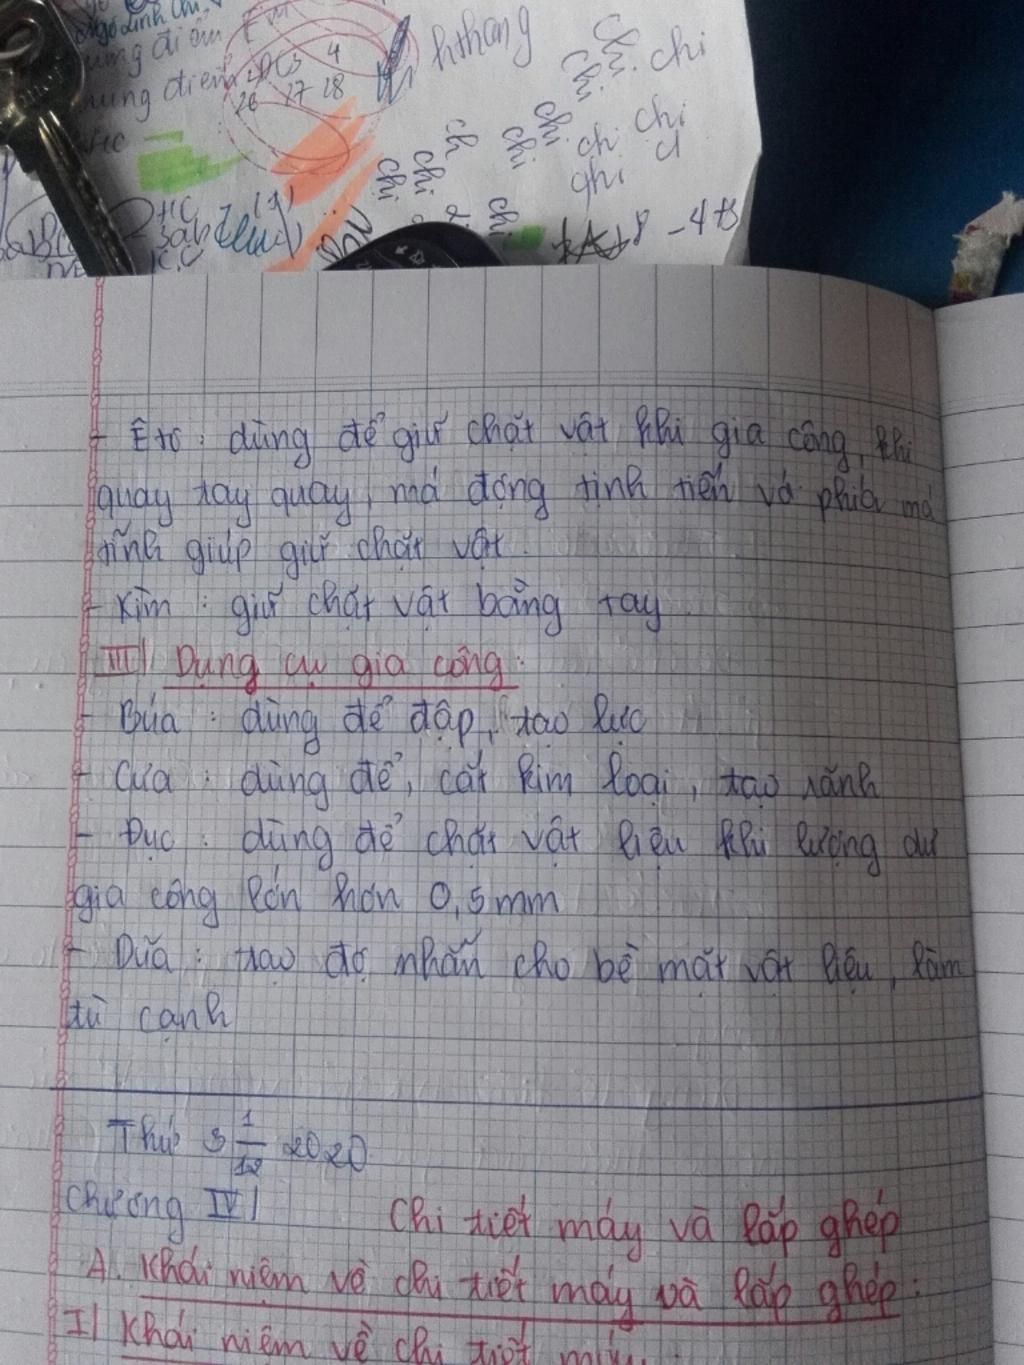 hthang
chi
chi
chi
chi
chi
chi
chi
ch
chi
chi
ghi
chi
4
26 27 28
- Êtô : dùng để giữ chặt vật khi gia công, khi
quay tay quay, má động tịnh tiến về phía má
tĩnh giúp giữ chặt vật.
- Kìm : giữ chặt vật bằng tay
III/ Dụng cụ gia công:
- Búa : dùng để đập, tạo lực
- Cưa : dùng để, cắt kim loại, tạo rãnh
- Đục : dùng để chặt vật liệu khi lượng dư
gia công lớn hơn 0,5mm
- Dũa : tạo độ nhẵn cho bề mặt vật liệu, làm
tù cạnh
Thứ 3 1/12 2020
Chương IV/ Chi tiết máy và lắp ghép
A. Khái niệm về chi tiết máy và lắp ghép:
I/ Khái niệm về chi tiết máy: